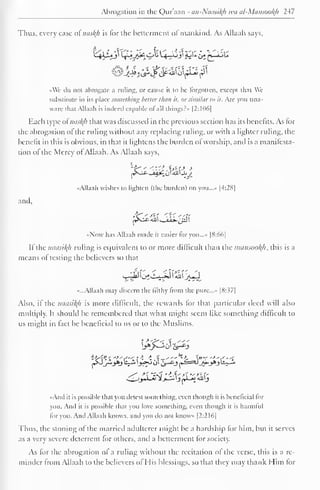 Abrogation in the Qur'aan - an-Naasikh wa al-Mansookh 247
Thus, every case of naskh is for the betterment of mankind. As Allaah says,
مَا نَنسَخْ مِنْ ءَايَةٍ أَوْ نُنسِهَا نَأْتِ بِخَيْرٍ مِّنْهَا أَوْ مِثْلِهَا
أَلَمْ تَعْلَمْ أَنَّ ٱللَّهَ عَلَىٰ كُلِّ شَىْءٍ قَدِيرٌ
«We do not abrogate a ruling, or cause it to be forgotten, except that We
substitute in its place something better than it, or similar to it. Are you una-
ware that Allaah is indeed capable of all things?» [2:106]
Each type of naskh that was discussed in the previous section has its benefits. As for
the abrogation of the ruling without any replacing ruling, or with a lighter ruling, the
benefit in this is obvious, in that it lightens the burden of worship, and is a manifesta-
tion of the Mercy of Allaah. As Allaah says,
يُرِيدُ ٱللَّهُ أَن يُخَفِّفَ عَنكُمْ
«Allaah wishes to lighten (the burden) on you...» [4:28]
and,
ٱلْـَٰٔنَ خَفَّفَ ٱللَّهُ عَنكُمْ
«Now has Allaah made it easier for you...» [8:66]
If the naasikh ruling is equivalent to or more difficult than the mansookh, this is a
means of testing the believers so that
لِيَمِيزَ ٱللَّهُ ٱلْخَبِيثَ مِنَ ٱلطَّيِّبِ
«...Allaah may discern the filthy from the pure...» [8:37]
Also, if the naasikh is more difficult, the rewards for that particular deed will also
multiply. It should be remembered that what might seem like something difficult to
us might in fact be beneficial to us or to the Muslims.
وَعَسَىٰٓ أَن تَكْرَهُوا۟
شَيْـًٔا وَهُوَ خَيْرٌ لَّكُمْ وَعَسَىٰٓ أَن تُحِبُّوا۟ شَيْـًٔا وَهُوَ شَرٌّ لَّكُمْ
وَٱللَّهُ يَعْلَمُ وَأَنتُمْ لَا تَعْلَمُونَ
«And it is possible that you detest something, even though it is beneficial for
you. And it is possible that you love something, even though it is harmful
for you. And Allaah knows, and you do not know» [2:216]
Thus, the stoning of the married adulterer might be a hardship for him, but it serves
as a very severe deterrent for others, and a betterment for society.
As for the abrogation of a ruling without the recitation of the verse, this is a re-
minder from Allaah to the believers of His blessings, so that they may thank Him for